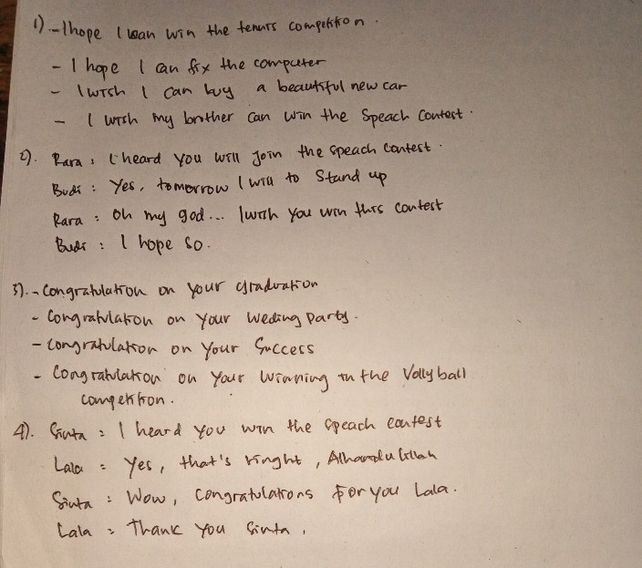 1) - I hope I can win the tennis competition.
- I hope I can fix the computer
- I wish I can buy a beautiful new car
- I wish my brother can win the Speach Contest.
2). Rara : I heard you will join the speach contest.
Budi : Yes, tomorrow I will to Stand up
Rara : Oh my god... I wish you win this contest
Budi : I hope so.
3). - Congratulation on your graduation
- Congratulation on your weding party.
- congratulation on your Success
- Congratulation on your winning in the Vollyball
competition.
4). Sinta : I heard you win the speach contest
Lala : Yes, that's ringht, Alhamdulillah
Sinta : Wow, Congratulations for you Lala.
Lala : Thank you Sinta.